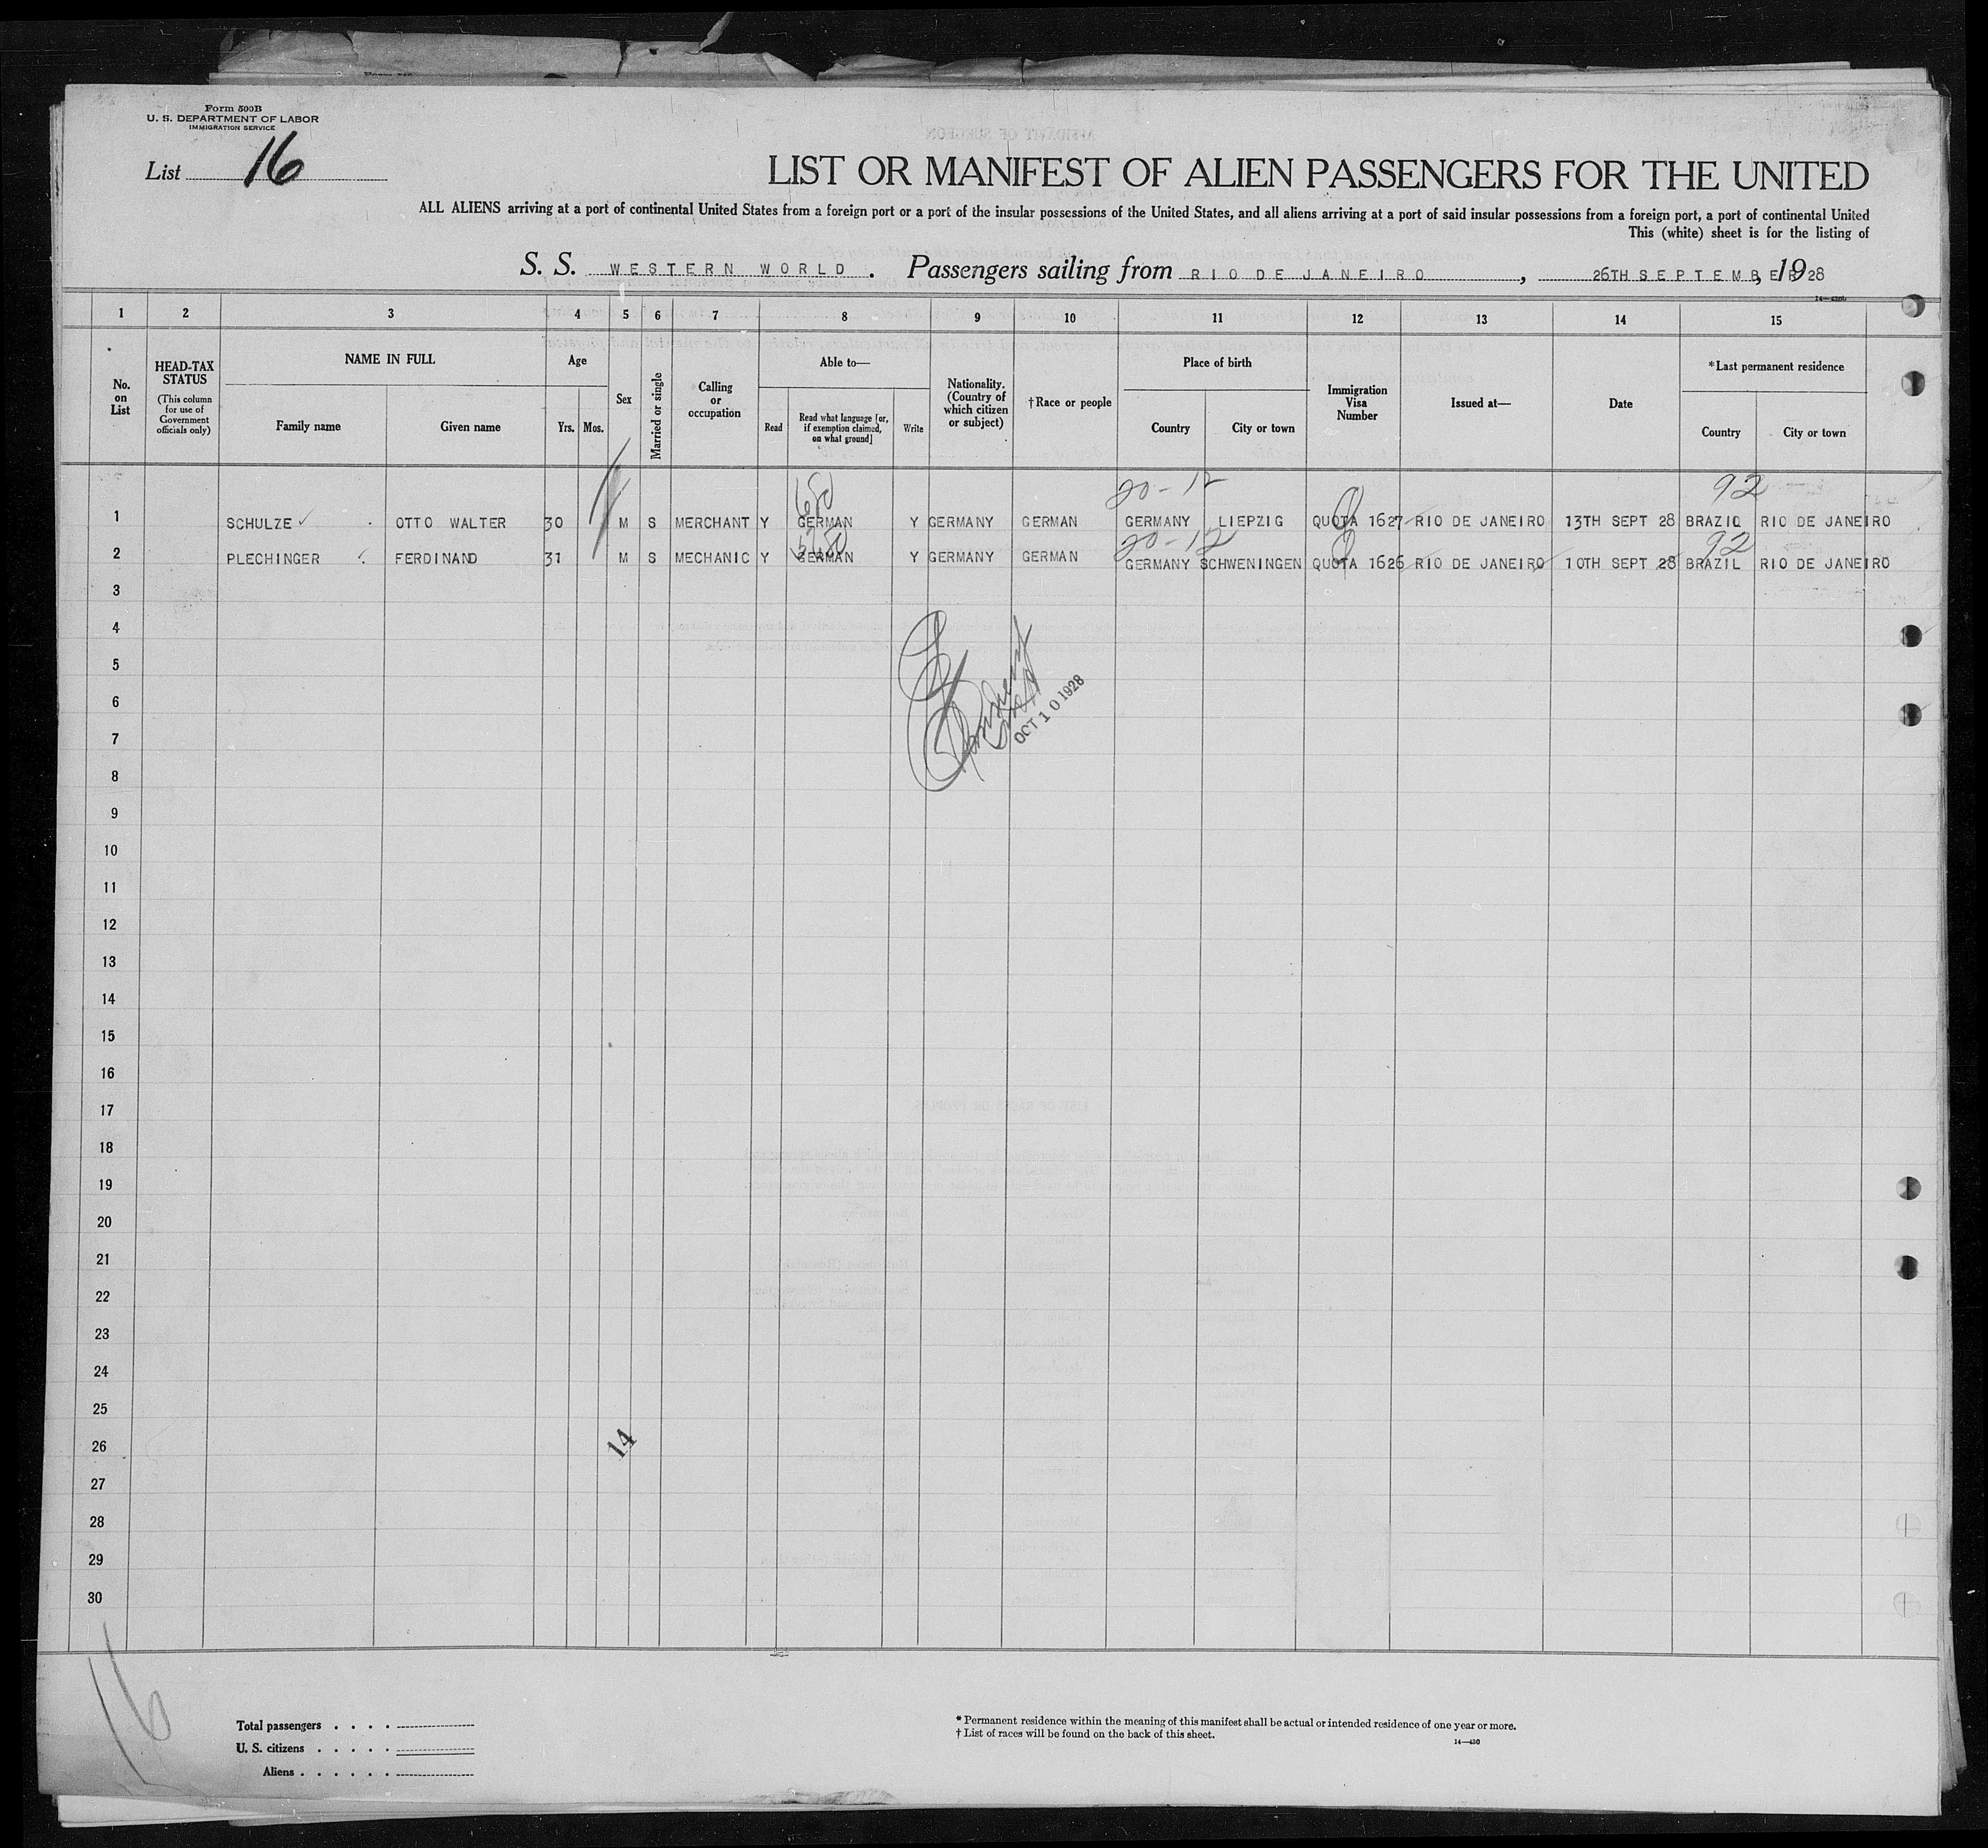 Form 500B
U. S. DEPARTMENT OF LABOR
IMMIGRATION SERVICE
List 16
LIST OR MANIFEST OF ALIEN PASSENGERS FOR THE UNITED
ALL ALIENS arriving at a port of continental United States from a foreign port or a port of the insular possessions of the United States, and all aliens arriving at a port of said insular possessions from a foreign port, a port of continental United
This (white) sheet is for the listing of
S. S. WESTERN WORLD. Passengers sailing from RIO DE JANEIRO, 26TH SEPTEMBER, 1928
1 2 3 4 5 6 7 8 9 10 11 12 13 14 15
No. on List
HEAD-TAX STATUS (This column for use of Government officials only)
NAME IN FULL
Family name Given name
Age
Yrs. Mos.
Sex
Married or single
Calling or occupation
Able to—
Read Read what language [or, if exemption claimed, on what ground] Write
Nationality. (Country of which citizen or subject)
†Race or people
Place of birth
Country City or town
Immigration Visa Number
Issued at—
Date
*Last permanent residence
Country City or town
20-12 92
1 SCHULZE ✓ OTTO WALTER 30 M S MERCHANT Y GERMAN Y GERMANY GERMAN GERMANY LIEPZIG QUOTA 1627 RIO DE JANEIRO 13TH SEPT 28 BRAZIL RIO DE JANEIRO
20-12 92
2 PLECHINGER FERDINAND 31 M S MECHANIC Y GERMAN Y GERMANY GERMAN GERMANY SCHWENINGEN QUOTA 1626 RIO DE JANEIRO 10TH SEPT 28 BRAZIL RIO DE JANEIRO
3
4
5
6
OCT 10 1928
7
8
9
10
11
12
13
14
15
16
17
18
19
20
21
22
23
24
25
26
14
27
28
29
30
16
Total passengers . . . .
U. S. citizens . . . . .
Aliens . . . . . .
* Permanent residence within the meaning of this manifest shall be actual or intended residence of one year or more.
† List of races will be found on the back of this sheet.
14—430